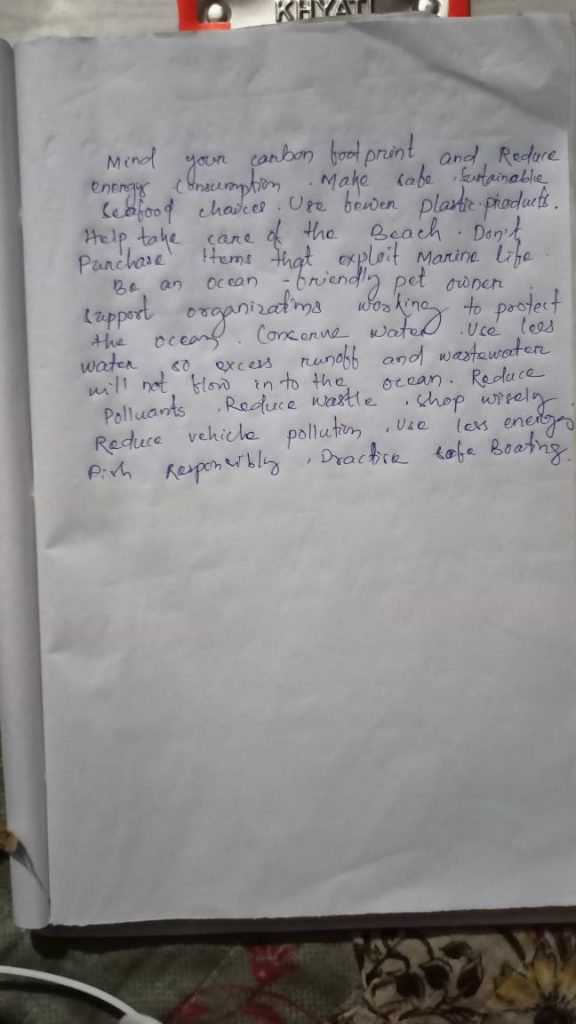 KHYATI
Mind your carbon footprint and Reduce
energy Consumption. Make safe, Sustainable
Seafood choices. Use fewer plastic products.
Help take care of the Beach. Don't
Purchase Items that exploit Marine life.
Be an ocean-friendly pet owner
support organizations working to protect
the ocean. Conserve water. Use less
water so excess runoff and wastewater
will not flow into the ocean. Reduce
Polluants. Reduce wastle, shop wisely
Reduce vehicle pollution, Use less energy
Fish Responsibly, Practice safe Boating.